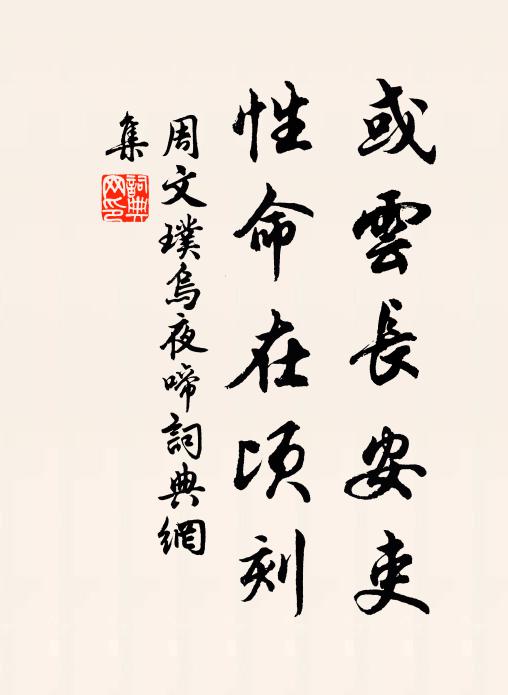 或雲長安吏
性命在頃刻
周文璞烏夜啼詞典網
集
詞典網印